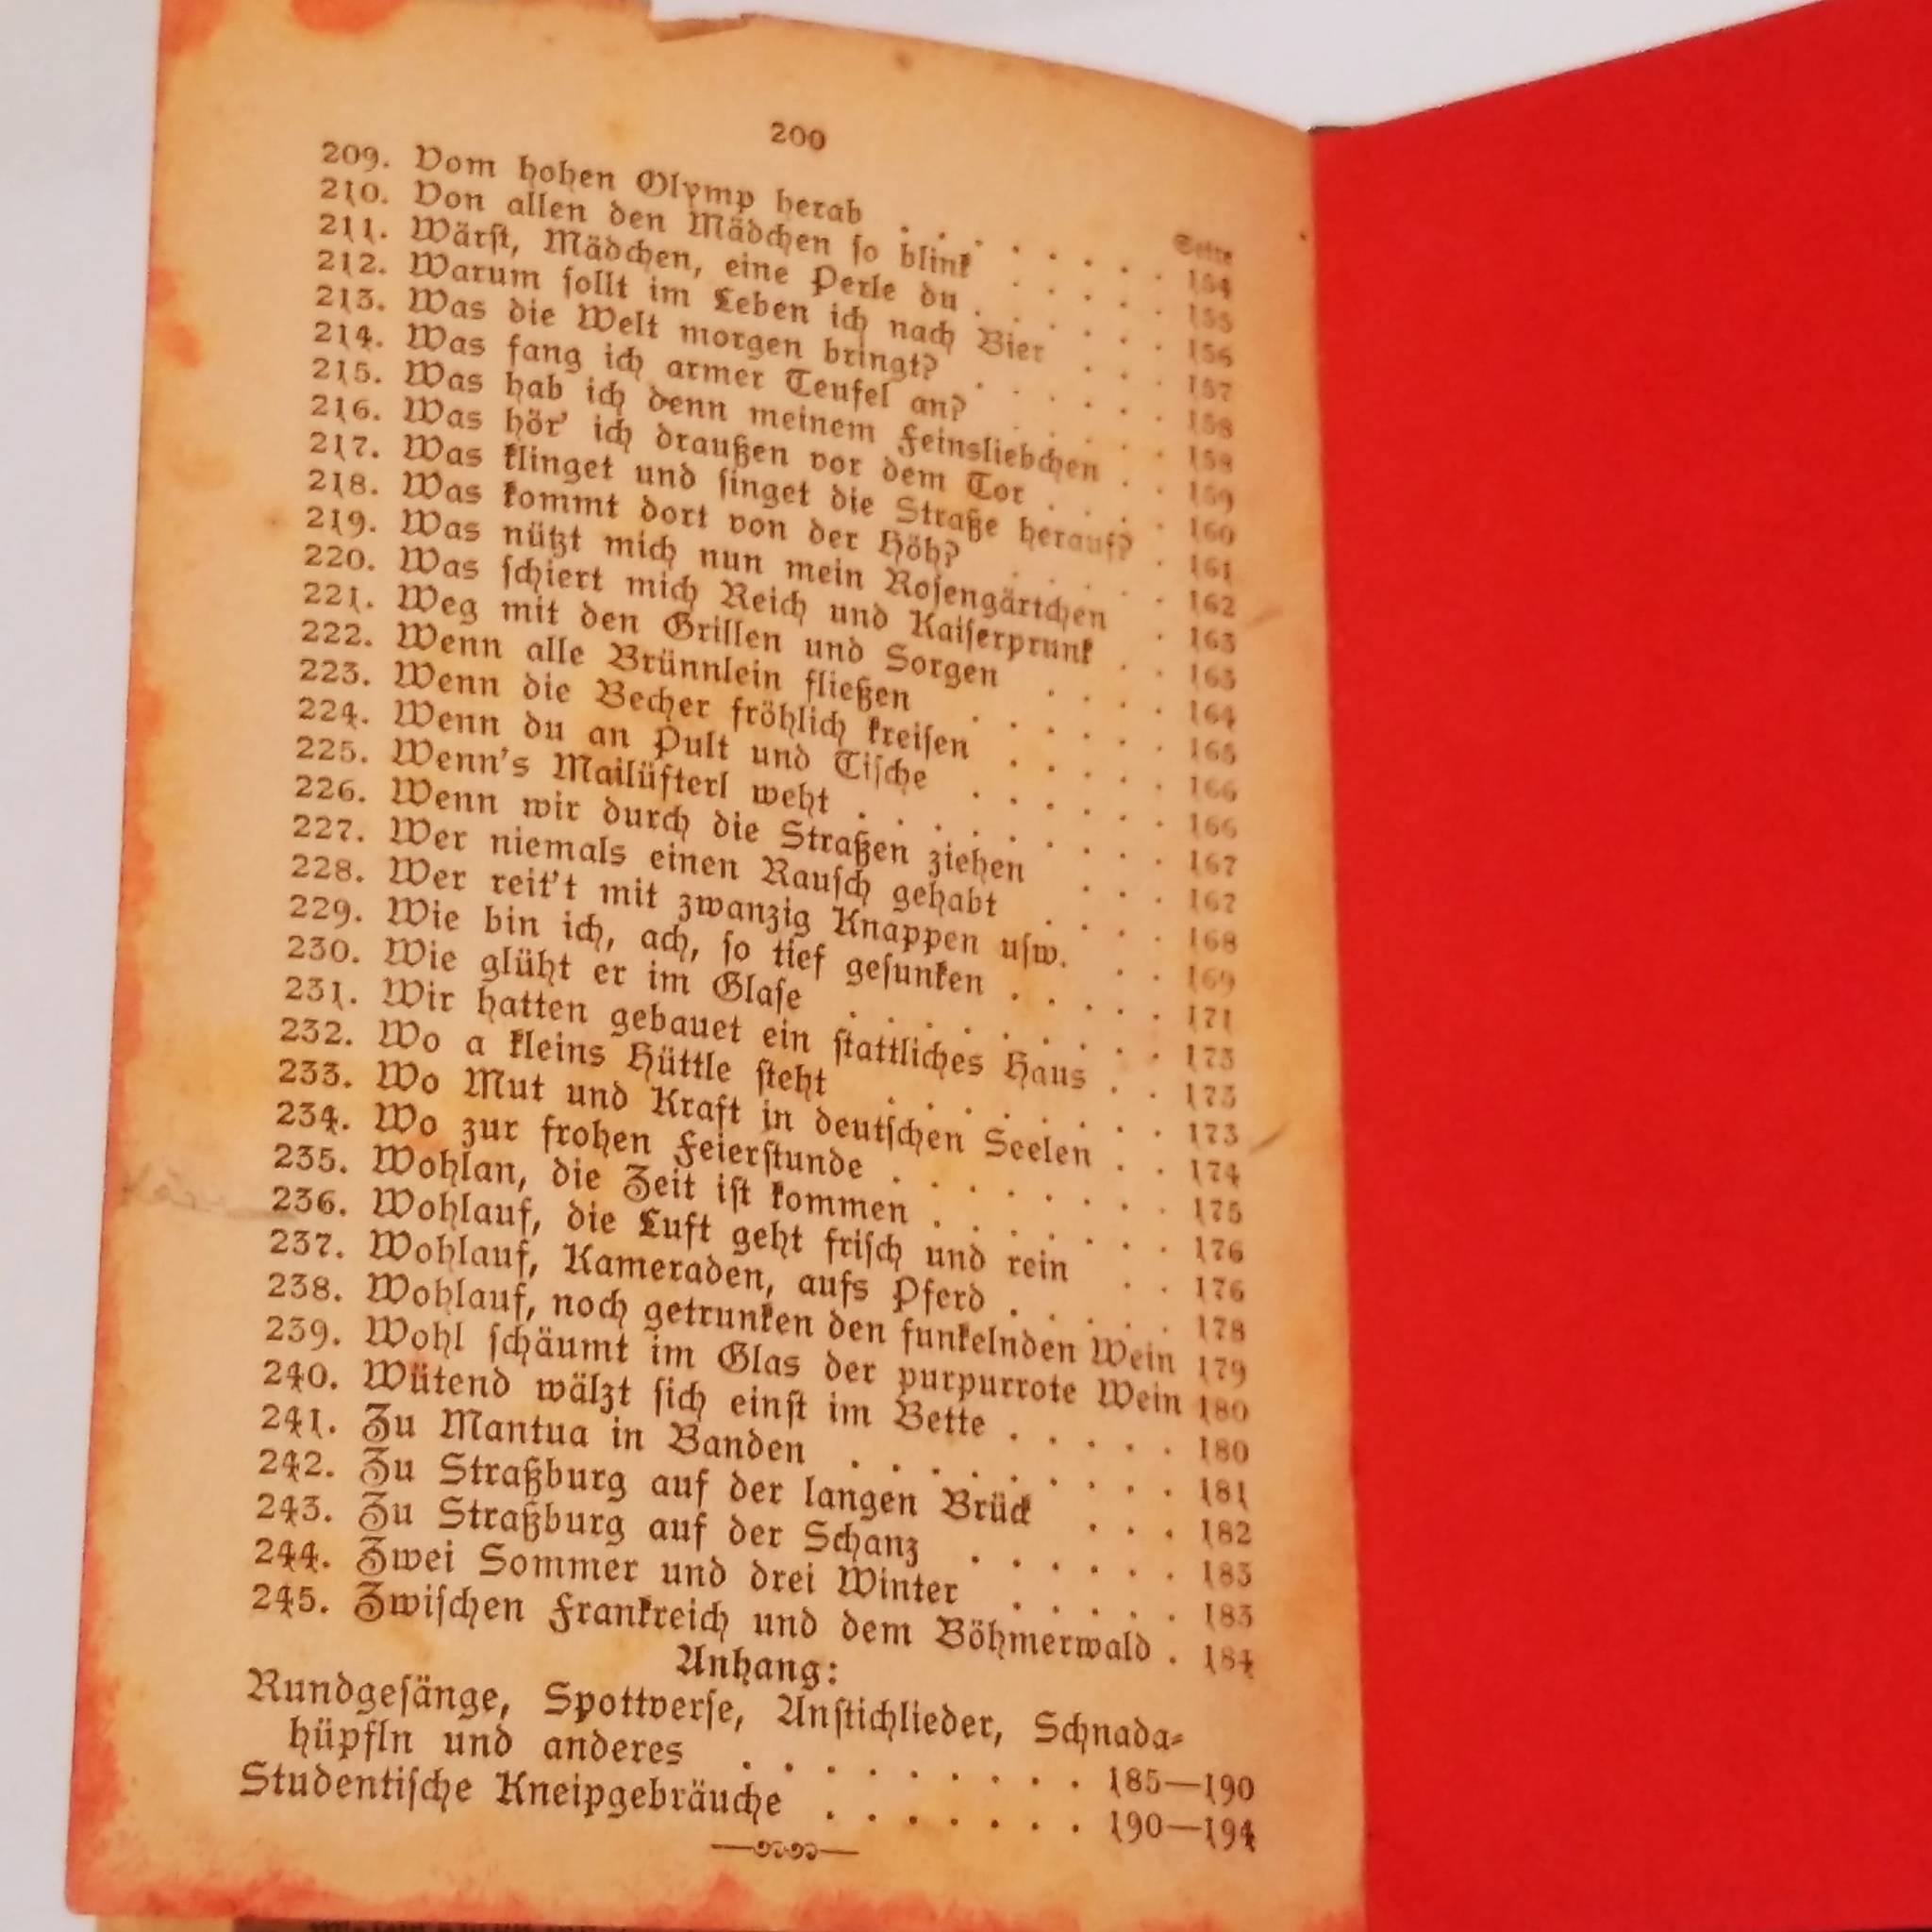 200
Seite
209. Vom hohen Olymp herab . . . . . . . 154
210. Von allen den Mädchen so blink . . . . . 155
211. Wärst, Mädchen, eine Perle du . . . . . . 156
212. Warum sollt im Leben ich nach Bier . . . 157
213. Was die Welt morgen bringt? . . . . . . 158
214. Was fang ich armer Teufel an? . . . . . 158
215. Was hab ich denn meinem Feinsliebchen . . 159
216. Was hör' ich draußen vor dem Tor . . . . 160
217. Was klinget und singet die Straße herauf? . 161
218. Was kommt dort von der Höh? . . . . . 162
219. Was nützt mich nun mein Rosengärtchen . 163
220. Was schiert mich Reich und Kaiserprunk . . 163
221. Weg mit den Grillen und Sorgen . . . . 164
222. Wenn alle Brünnlein fließen . . . . . . 165
223. Wenn die Becher fröhlich kreisen . . . . . 166
224. Wenn du an Pult und Tische . . . . . . 166
225. Wenn's Mailüfterl weht . . . . . . . . . 167
226. Wenn wir durch die Straßen ziehen . . . 167
227. Wer niemals einen Rausch gehabt . . . . 168
228. Wer reit't mit zwanzig Knappen usw. . . 169
229. Wie bin ich, ach, so tief gesunken . . . . . 171
230. Wie glüht er im Glase . . . . . . . . . 173
231. Wir hatten gebauet ein stattliches Haus . . 173
232. Wo a kleins Hüttle steht . . . . . . . . 173
233. Wo Mut und Kraft in deutschen Seelen . . 174
234. Wo zur frohen Feierstunde . . . . . . . . 175
235. Wohlan, die Zeit ist kommen . . . . . . . 176
236. Wohlauf, die Luft geht frisch und rein . . 176
237. Wohlauf, Kameraden, aufs Pferd . . . . . 178
238. Wohlauf, noch getrunken den funkelnden Wein 179
239. Wohl schäumt im Glas der purpurrote Wein 180
240. Wütend wälzt sich einst im Bette . . . . . 180
241. Zu Mantua in Banden . . . . . . . . . 181
242. Zu Straßburg auf der langen Brück . . . 182
243. Zu Straßburg auf der Schanz . . . . . . 183
244. Zwei Sommer und drei Winter . . . . . 183
245. Zwischen Frankreich und dem Böhmerwald . 184
Anhang:
Rundgesänge, Spottverse, Anstichlieder, Schnada-
hüpfln und anderes . . . . . . . . . 185—190
Studentische Kneipgebräuche . . . . . . . 190—194